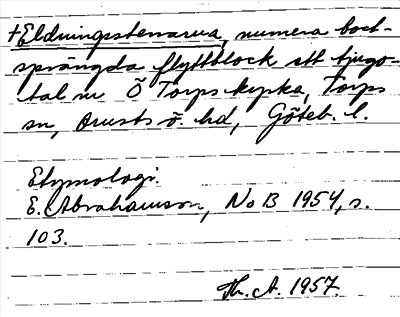 +Eldningsstenarna, numera bort-
sprängda flyttblock ett tjugo-
tal m Ö Torps kyrka, Torps
sn, Orusts ö. hd, Göteb. l.
Etymologi.
E. Abrahamson, NoB 1954, s.
103.
Th. A. 1957